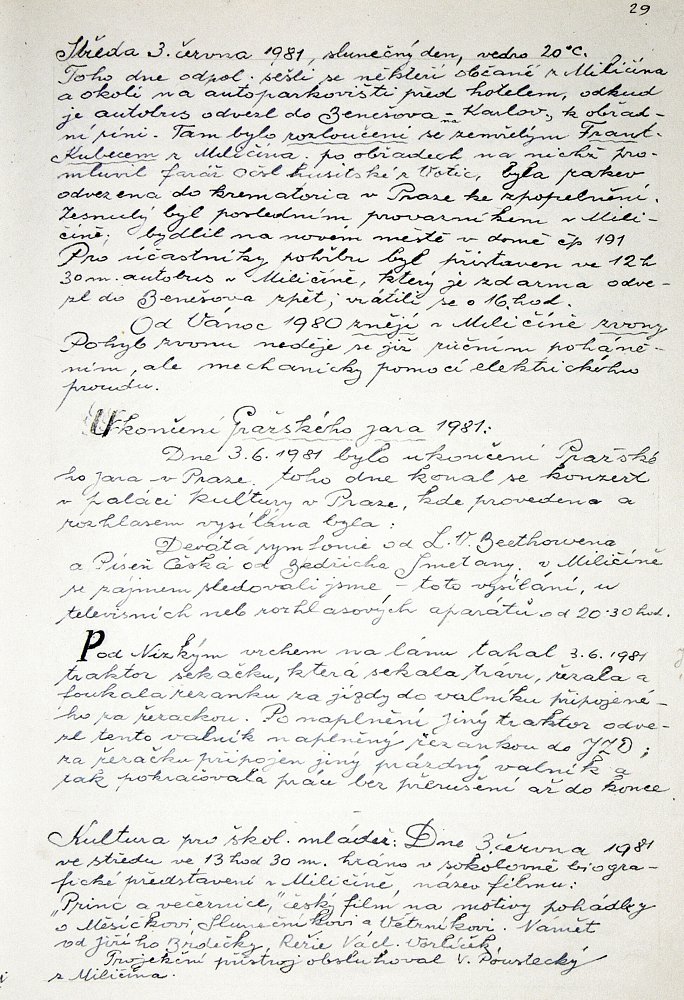 29
Středa 3. června 1981, slunečný den, vedro 20°C.
Toho dne odpol. sešli se někteří občané z Miličína
a okolí na autoparkovišti před hotelem, odkud
je autobus odvezl do Benešova - Karlov, k obřad-
ní síni. Tam bylo rozloučení se zemřelým Frant.
Kubecem z Miličína. po obřadech na nichž pro-
mluvil farář čsl. husitské z Votic, byla rakev
odvezena do krematoria v Praze ke zpopelnění.
Zesnulý byl posledním provazníkem v Mili-
číně; bydlil na novém městě v domě čp 191
Pro účastníky pohřbu byl přistaven ve 12 h
30 m. autobus v Miličíně, který je zdarma odve-
zl do Benešova zpět; vrátili se o 16 hod.
Od Vánoc 1980 znějí v Miličíně zvony
Pohyb zvonu neděje se již ručním poháně-
ním, ale mechanicky pomocí elektrického
proudu.
Ukončení Pražského jara 1981:
Dne 3.6.1981 bylo ukončení Pražské
ho jara v Praze. toho dne konal se konzert
v paláci kultury v Praze, kde provedena a
rozhlasem vysílána byla:
Devátá symfonie od L. V. Beethowena
a Píseň Česká od Bedřicha Smetany. v Miličíně
se zájmem sledovali jsme - toto vysílání, u
televisních neb rozhlasových aparátů od 20.30 hod.
Pod Nízkým vrchem na lánu tahal 3.6.1981
traktor sekačku, která sekala trávu, řezala a
foukala řezanku za jízdy do valníku připojené-
ho za řezačkou. Po naplnění jiný traktor odve-
zl tento valník naplněný řezankou do JZD;
za řezačku připojen jiný prázdný valník a
tak pokračovala práce bez přerušení až do konce.
Kultura pro škol. mládež: Dne 3. června 1981
ve středu ve 13 hod 30 m. hráno v sokolovně biogra-
fické představení v Miličíně, název filmu:
"Princ a večernice," český film na motivy pohádky
o Měsíčkovi, Slunečníkovi a Větrníkovi. Námět
od Jiřího Brdečky, Režie Václ. Vorlíček,
Projekční přístroj obsluhoval V. Poustecký
z Miličína.